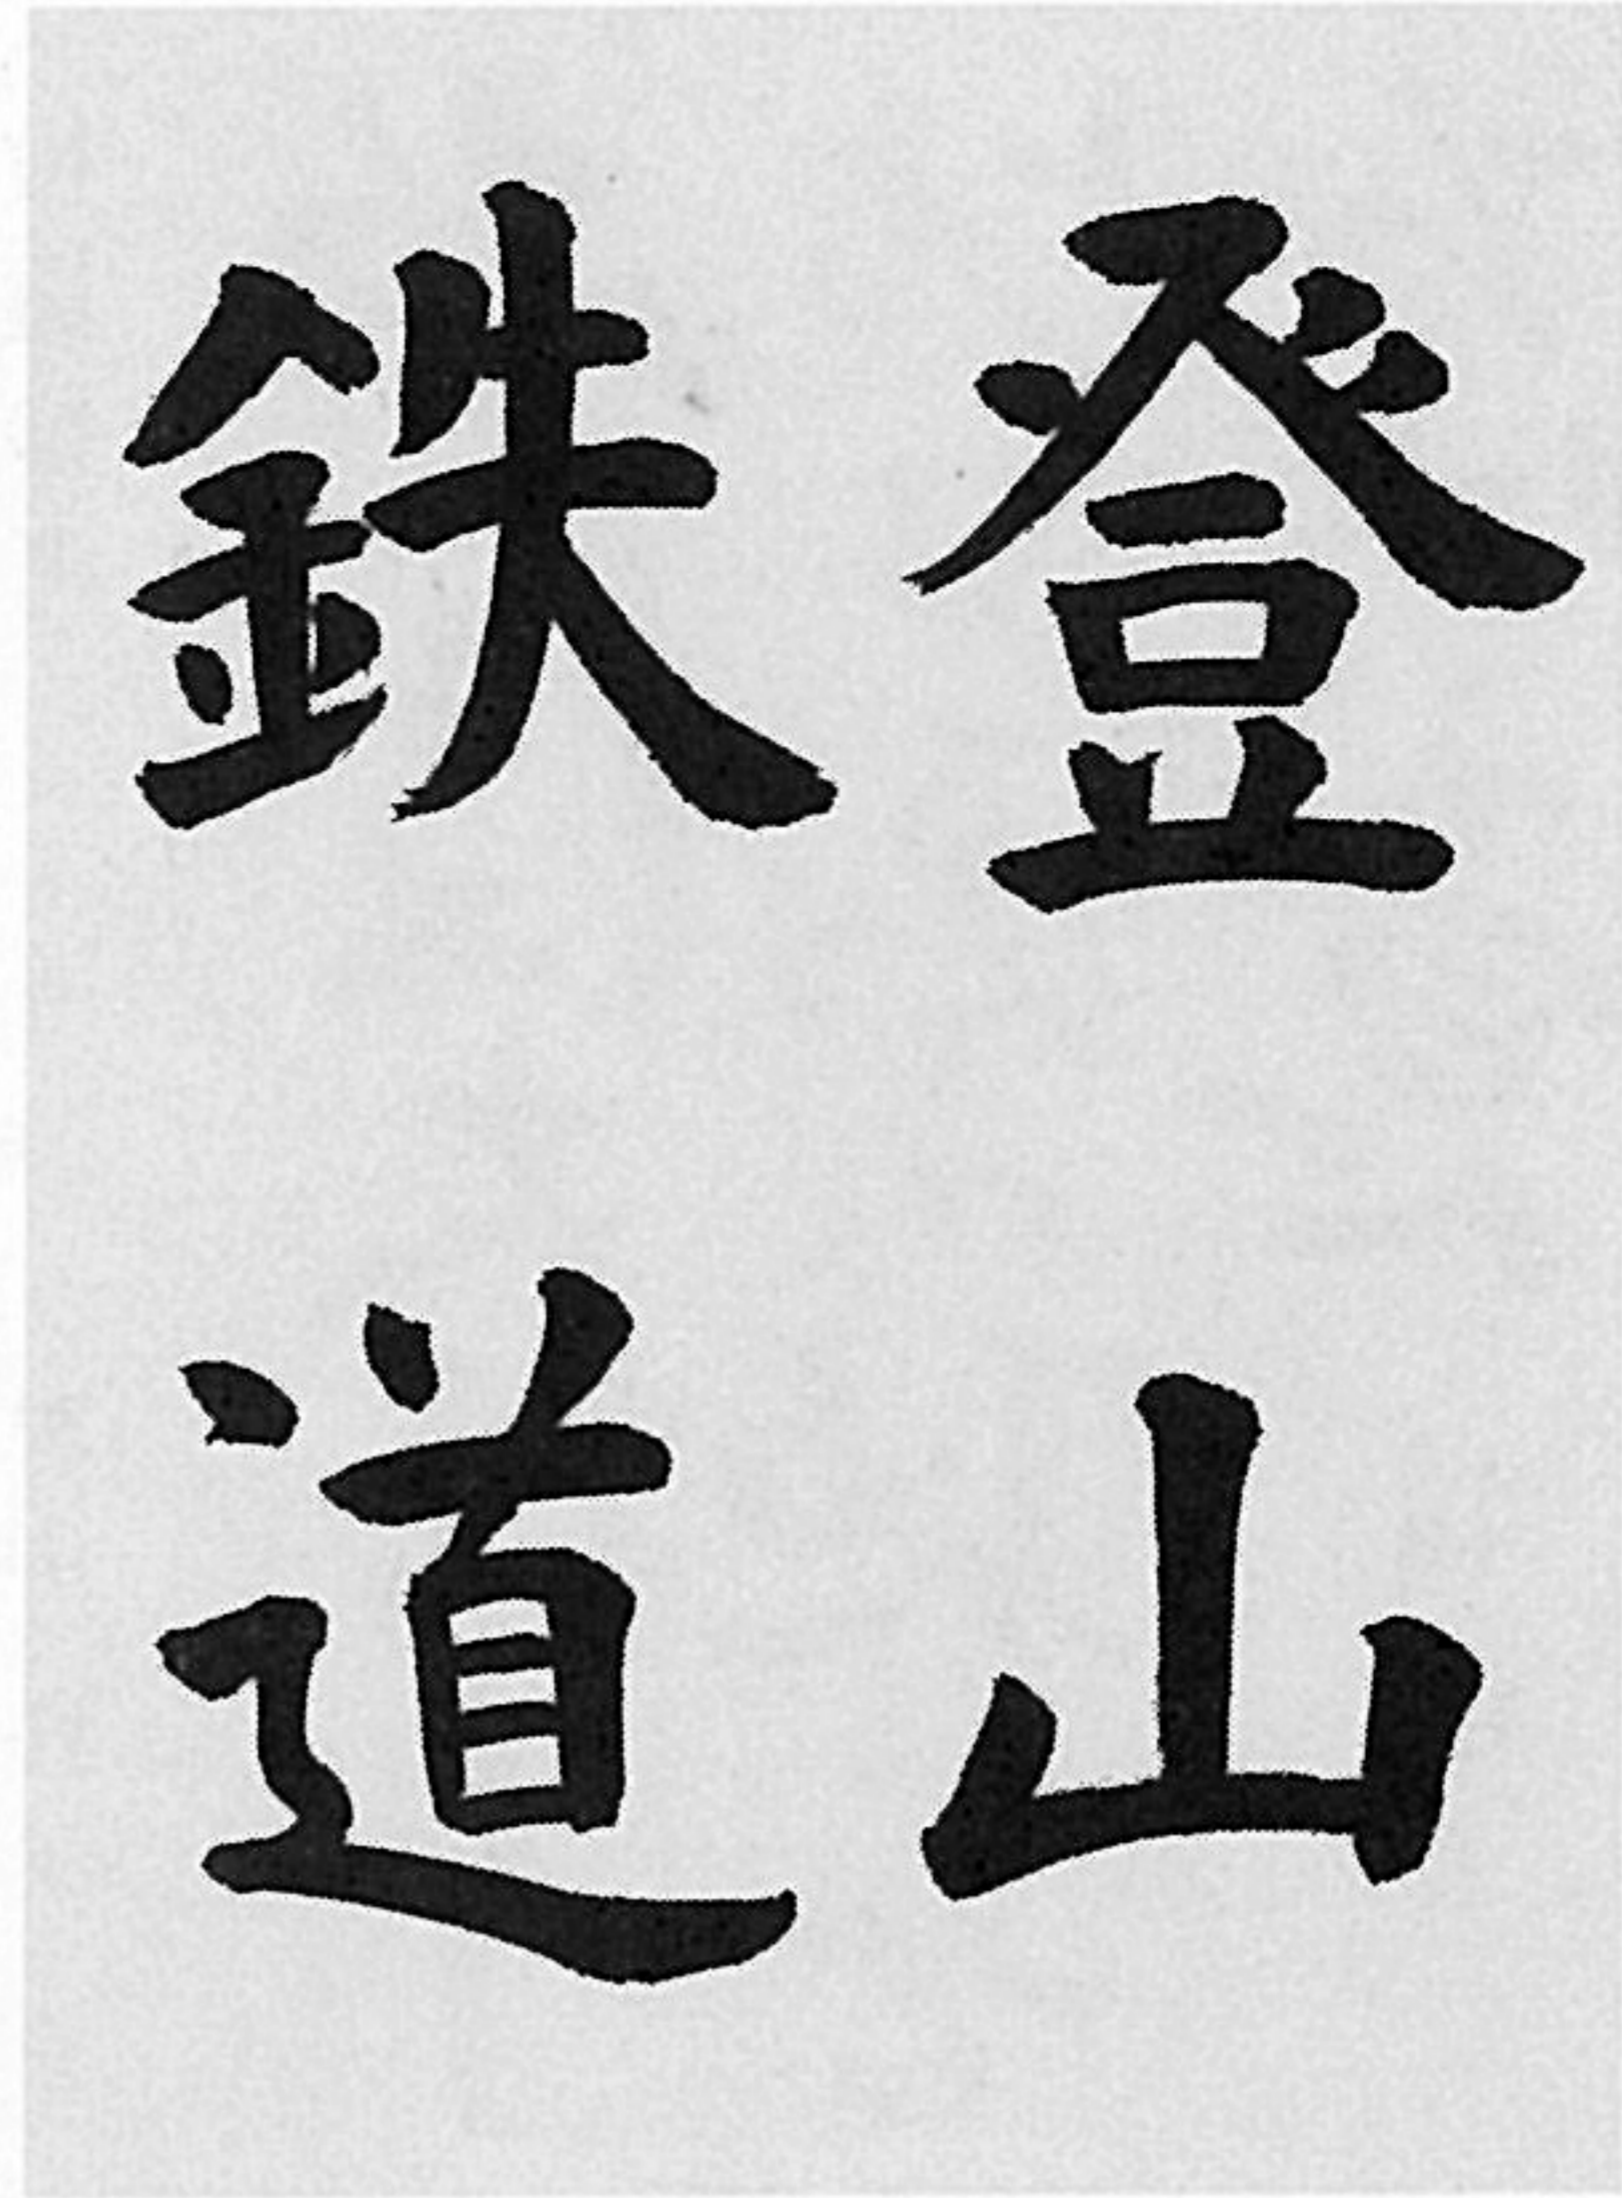 登山
鉄道